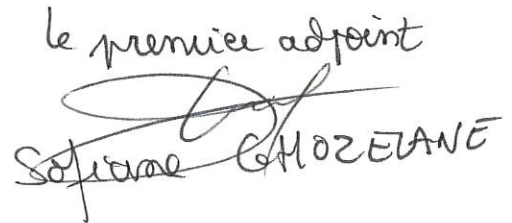 le premier adjoint
Sofiane GHOZELANE